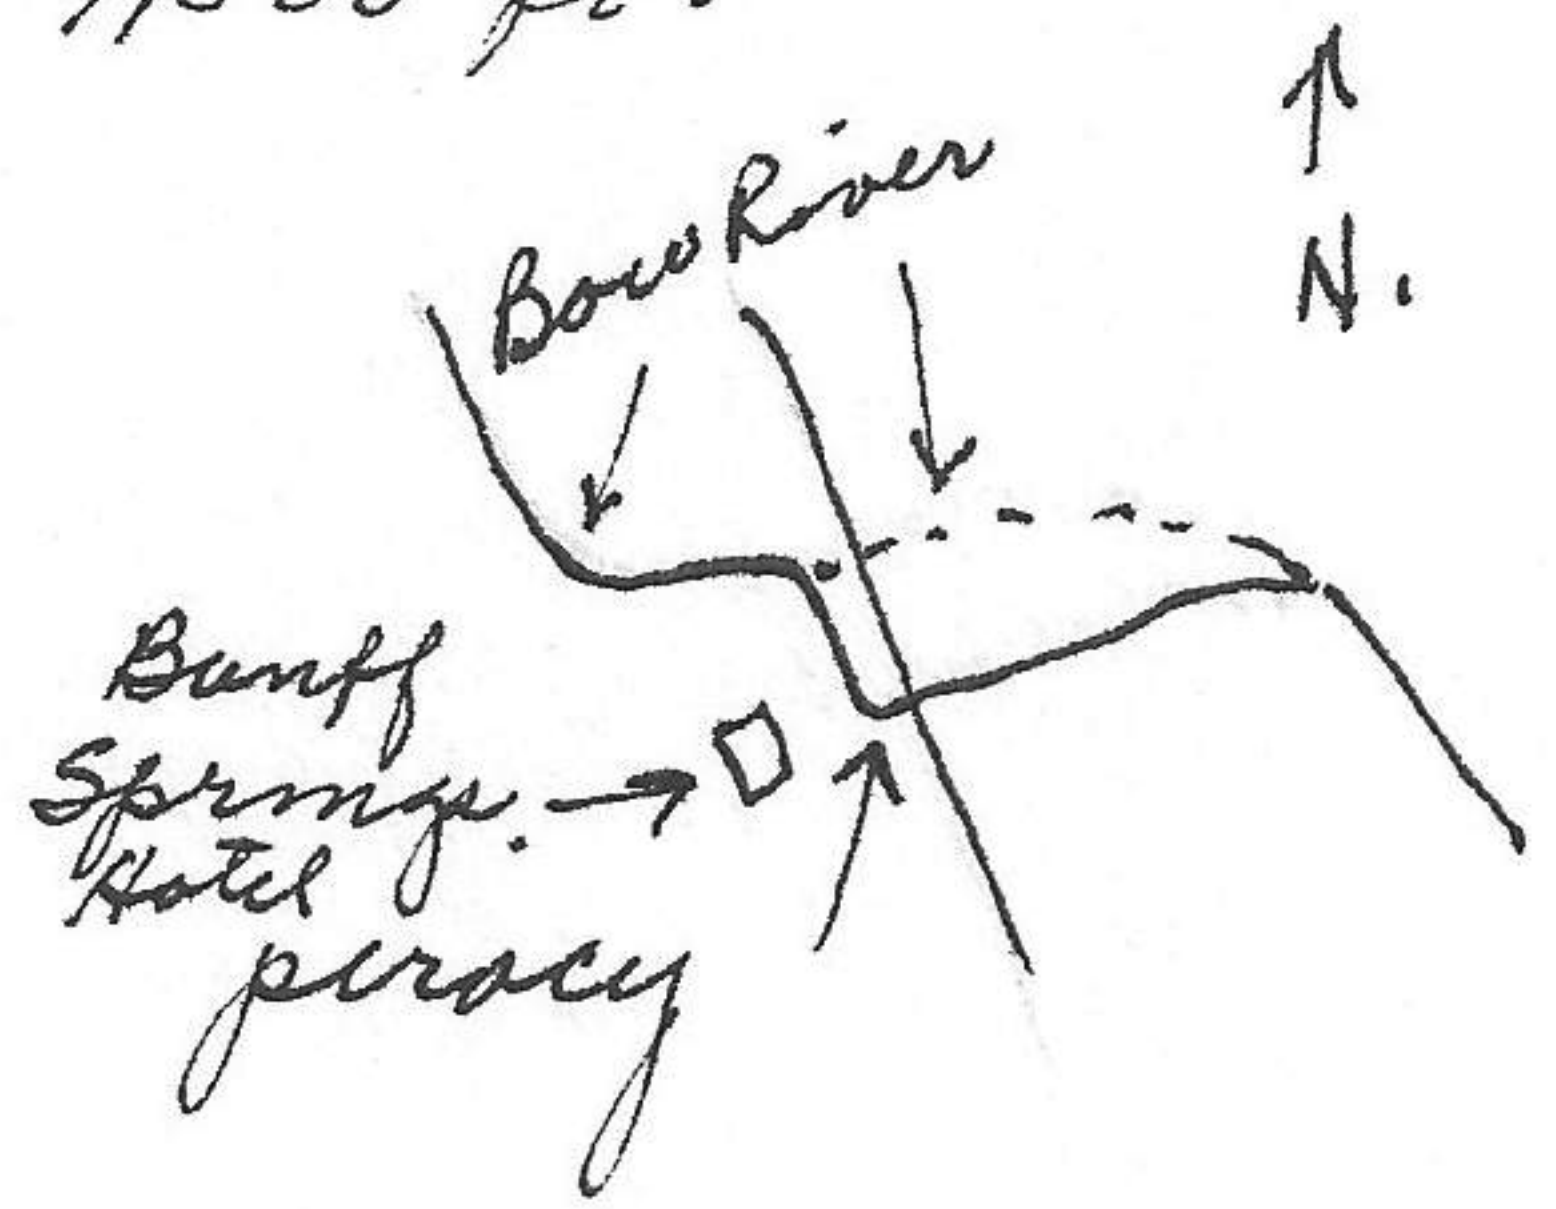 Bow River
N.
Banff
Springs.
Hotel
piracy